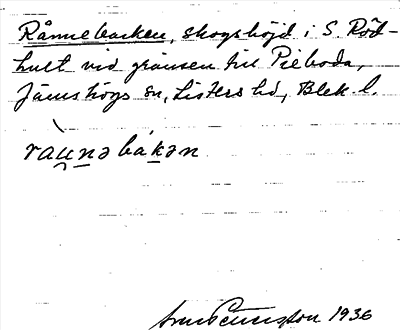 Rånnebacken, skogshöjd i S. Röd-
hult vid gränsen till Pieboda,
Jämshögs sn, Listers hd, Blek. l.
ràu̯nəbakən
1936